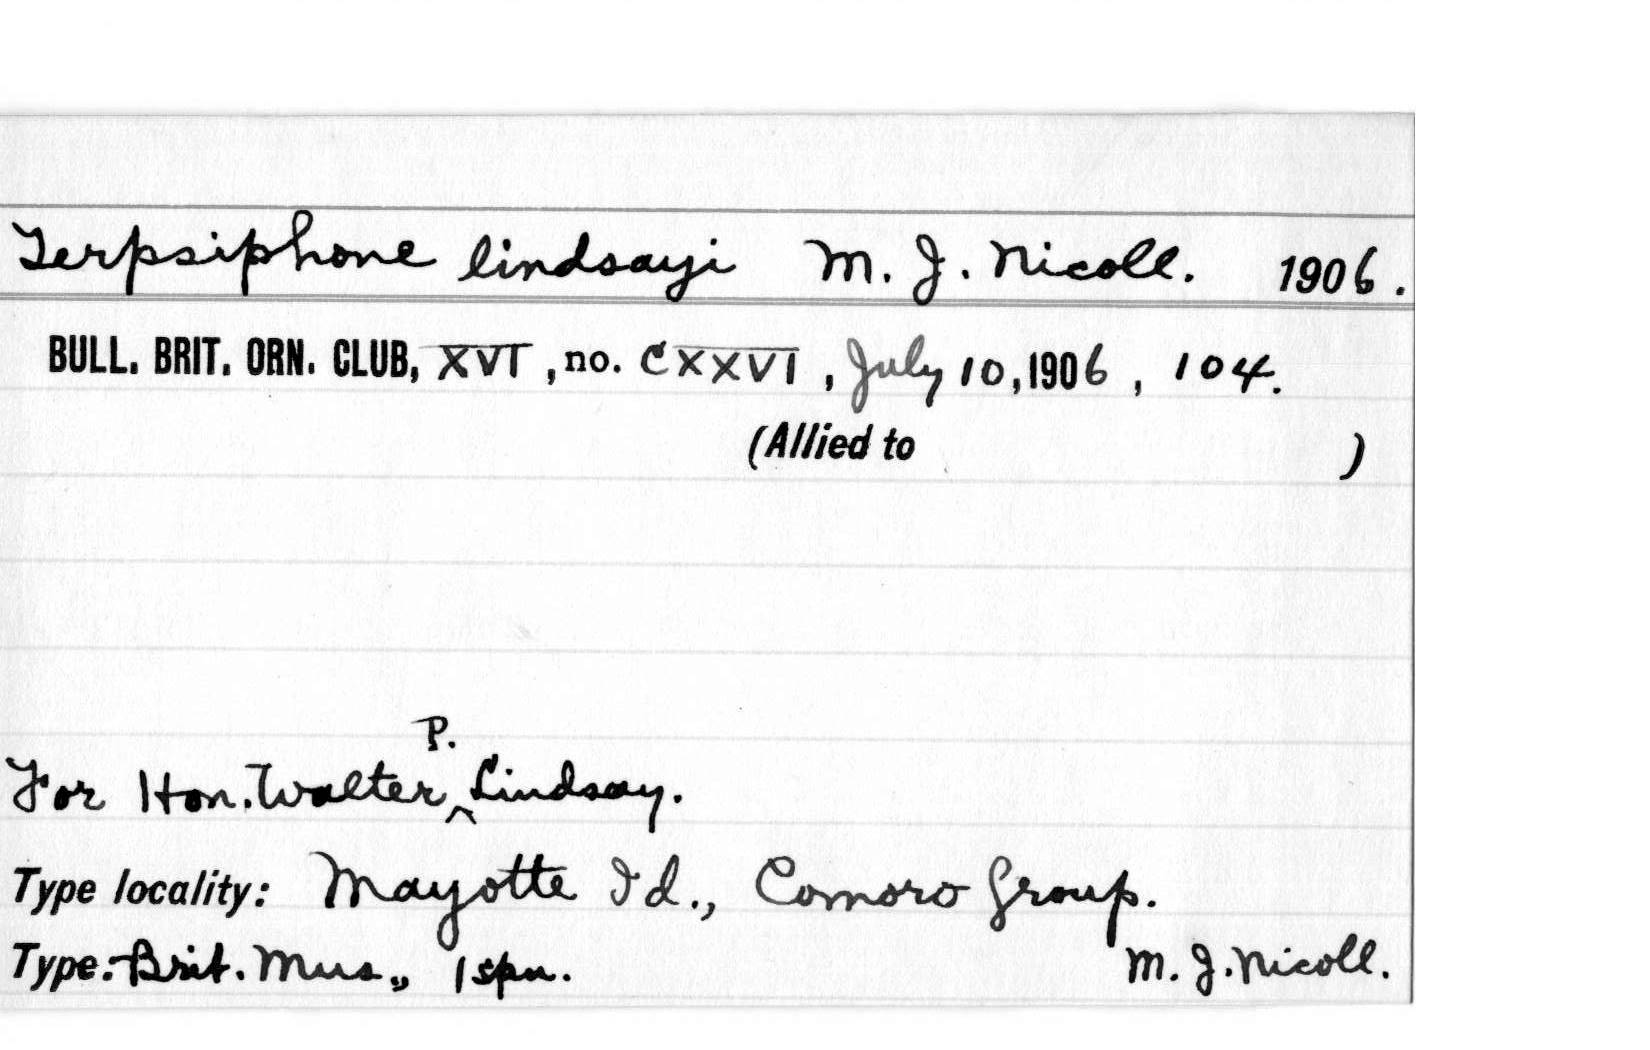 Terpsiphone lindsayi M. J. Nicoll. 1906.
BULL. BRIT. ORN. CLUB, XVI, no. CXXVI, July 10, 1906, 104.
(Allied to )
For Hon. Walter P. Lindsay.
Type locality: Mayotte Id., Comoro Group.
Type:-Brit. Mus., 1 spn. M. J. Nicoll.